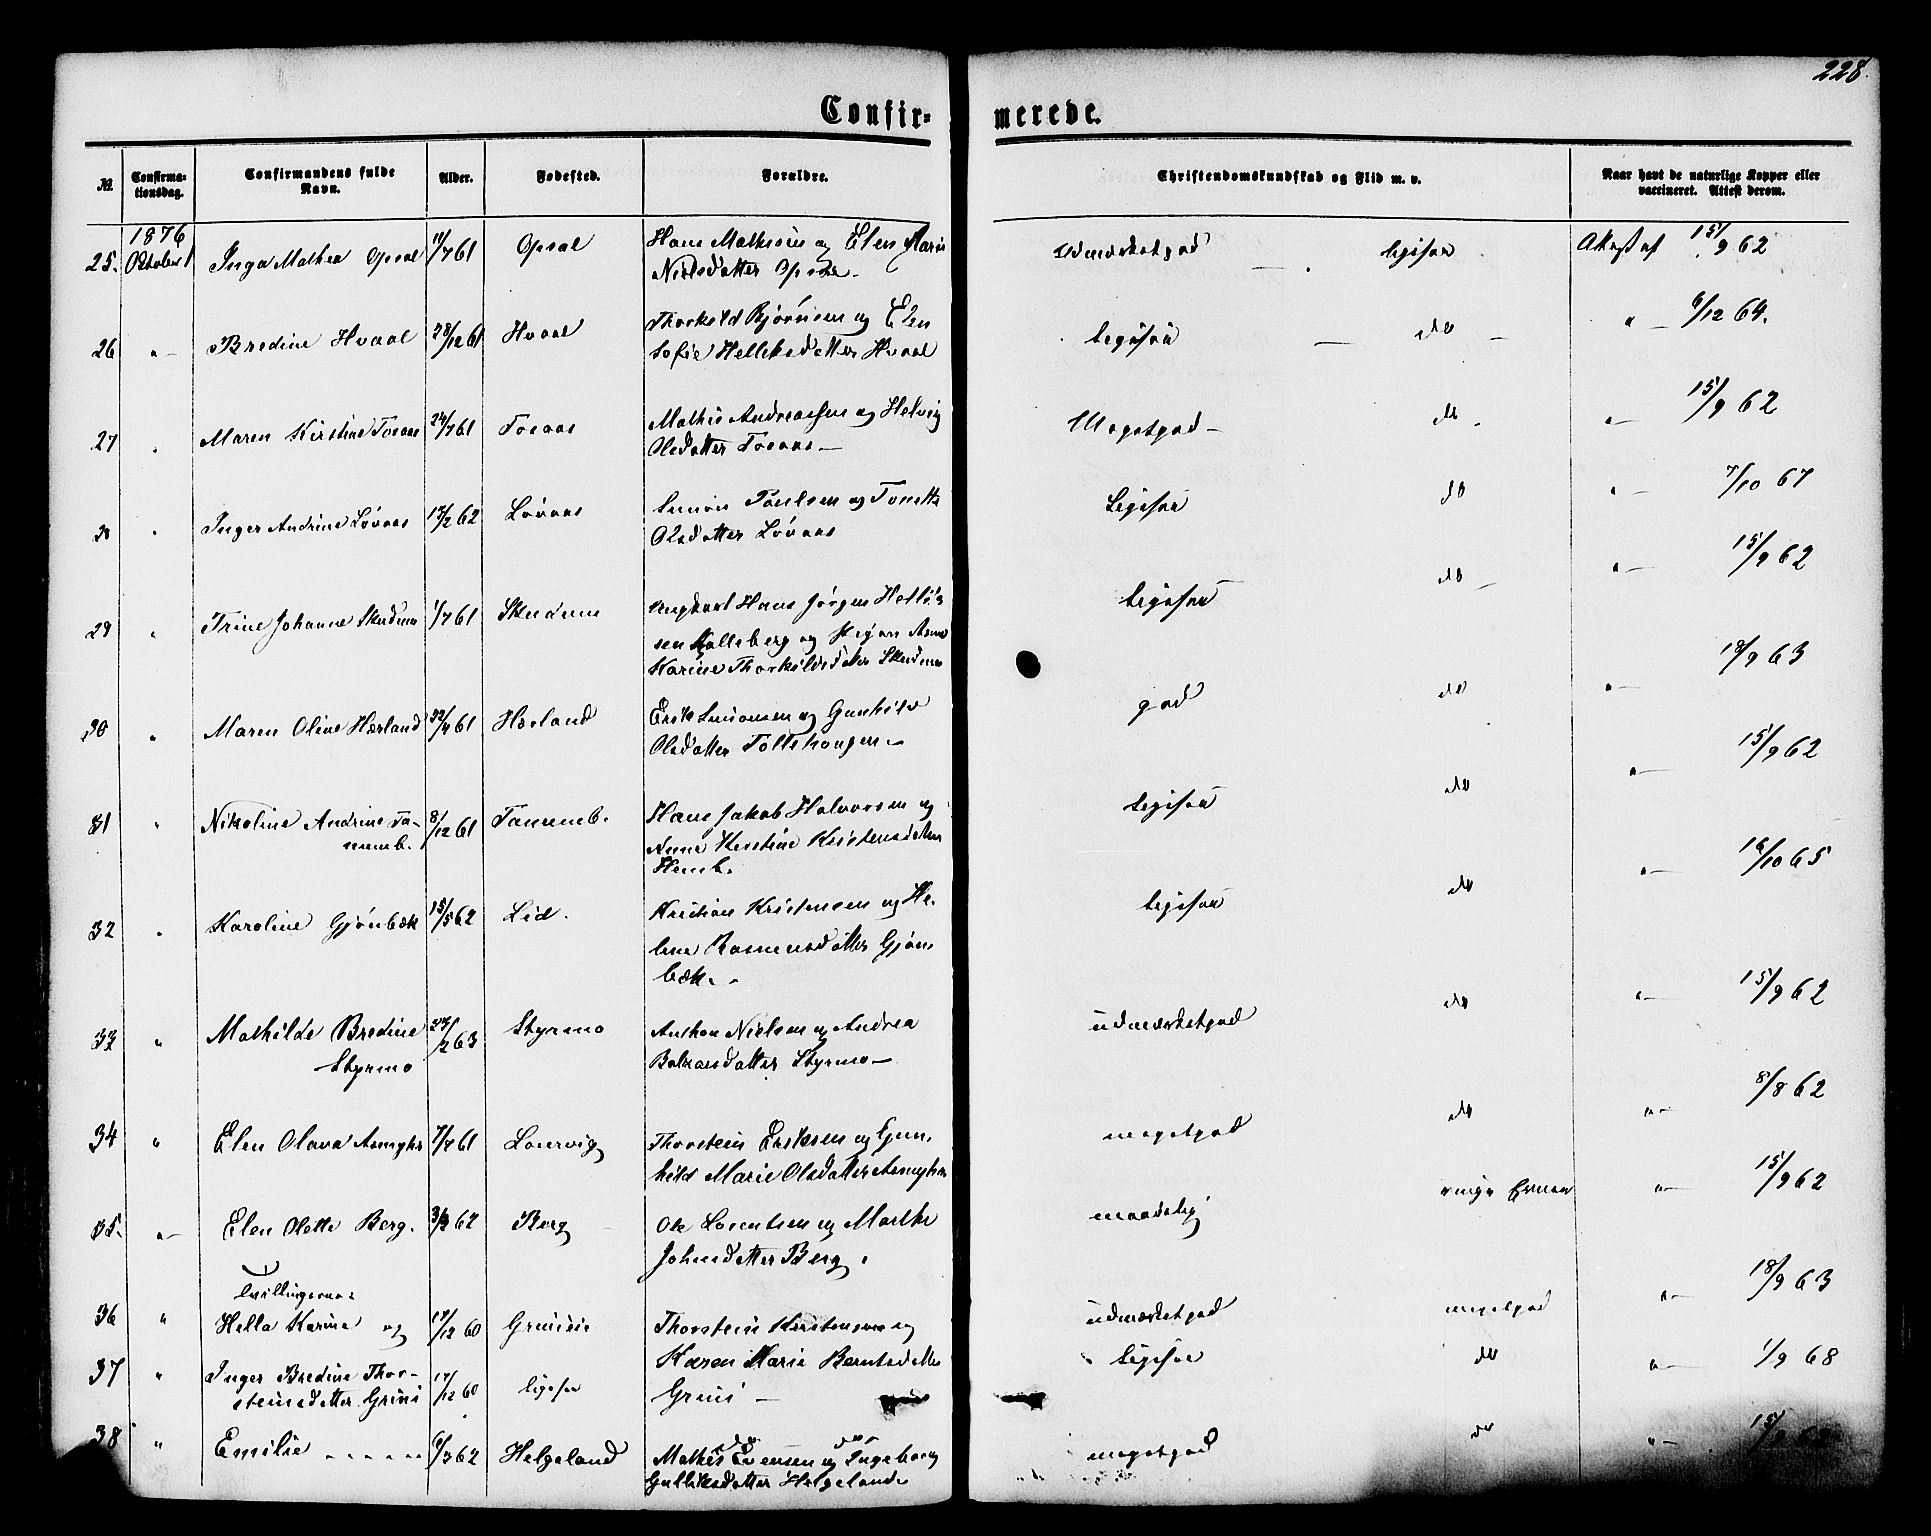 228.
Confir-
merede.
№
Confirma-
tionsdag.
Confirmandens fulde
Navn.
Alder.
Fødested.
Forældre.
Christendomskundskab og Flid m. v.
Naar havt de naturlige Kopper eller
vaccineret. Attest derom.
1876
25. Oktober 1 Inga Mathea Opsal 11/7 61 Opsal Hans Mathisen og Elen Marie
Nielsdatter Opsal
udmærketgod ligesaa 15/9 62
26 " Bredine Hvaal 28/12 61 Hvaal Thorkild Bjørnsen og Elen
Sofie Helleksdatter Hvaal
ligesaa do " 6/12 64.
27 Maren Kirstine Toraas 24/7 61 Toraas Mathis Andreassen og Helvig
Olsdatter Toraas
Megetgod do " 15/9 62
28 Inger Andrine Løvaas 17/2 62 Løvaas Simon Paulsen og Tonette
Olsdatter Løvaas
Ligesaa do " 7/10 67
29 " Trine Johanne Skudum 1/7 61 Ungkarl Hans Jørgen
og Pigen
Karine Thorkildsdatter
ligesaa do " 15/9 62
30 " Maren Oline Hærland 61 Hærland Erik Simonsen og Gunhild
Olsdatter
god do " 18/9 63
31 " Nikoline Andrine Ta-
numb. 8/12 61 Tanumb. Hans Jakob Halvorsen og
Anne Kirstine Kristensdatter
Hemb.
ligesaa do " 15/9 62
32 Karoline Gjønbæk 15/5 62 Lid. Kristian Kristensen og He-
lene Rasmusdatter Gjøn-
bæk.
ligesaa do " 16/10 65
33 " Mathilde Bredine
Styrmo 24/2 63 Styrmo Anthon Nielsen og Andrea
Styrmo
udmærketgod do " 15/9 62
34 " Elen Olava 7/7 61 Lourvig Thorstein Eriksen og Gun-
hild Marie Olsdatter
megetgod do " 8/8 62
35. " Elen Olette Berg. 62 Berg Ole Lorentsen og Marthe
Johnsdatter Berg.
maadelig ringe Evner " 15/9 62
Tvillingerne
36 " Hella Karine og 17/12 60 Thorstein Kristensen og
udmærketgod megetgod " 18/9 63
37 " Inger Bredine Thor-
steinsdatter 17/12 60 ligesaa Karen Marie Berntsdatter
ligesaa do " 1/9 68
38 " Emilie 6/3 62 Helgeland Mathis Evensen og Ingeborg
Gulliksdatter Helgeland
megetgod do "